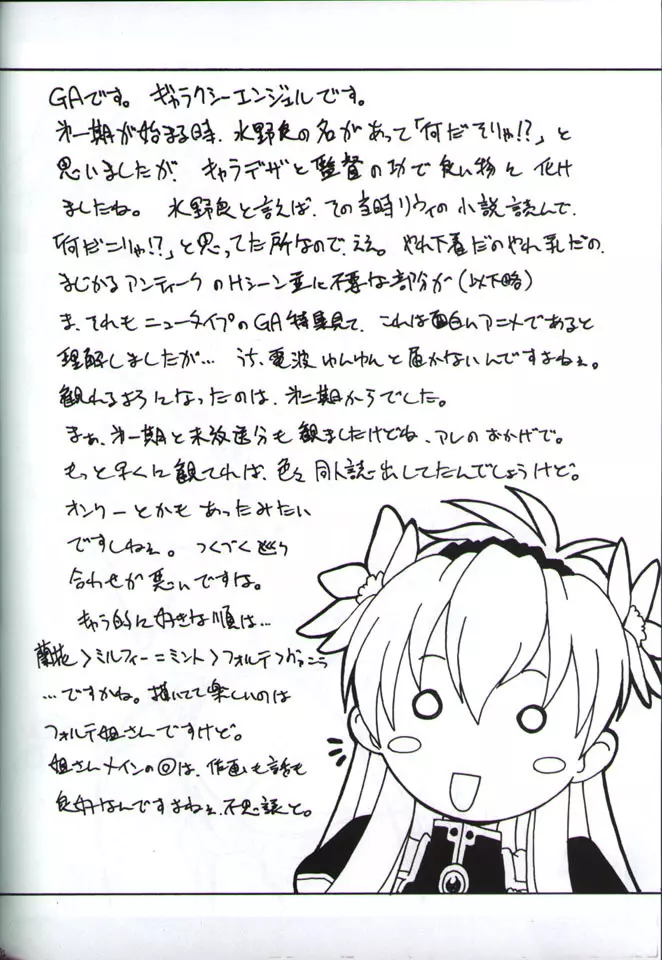 GAです。 ギャラクシーエンジェルです。
第一期が始まる時、水野良の名があって「何だそりゃ!?」と
思いましたが、キャラデザと監督の功で良い物に化け
ましたね。 水野良と言えば、その当時リウィの小説読んで、
「何だこりゃ!?」と思ってた所なので、ええ。やれ下着だのやれ乳だの、
まじかるアンティークのHシーン並に不要な部分が(以下略)
ま、それもニュータイプのGA特集見て、これは面白いアニメであると
理解しましたが… うち、電波ゆんゆんと届かないんですよねぇ。
観れるようになったのは、第二期からでした。
まぁ、第一期と未放送分も観ましたけどね、アレのおかげで。
もっと早くに観てれば、色々同人誌出してたんでしょうけど。
オンリーとかもあったみたい
ですしねぇ。 つくづく巡り
合わせが悪いですな。
キャラ的に好きな順は…
蘭花>ミルフィー=ミント>フォルテ>
…ですかね。描いてて楽しいのは
フォルテ姐さんですけど。
姐さんメインの回は、作画も話も
良好なんですよねぇ、不思議と。